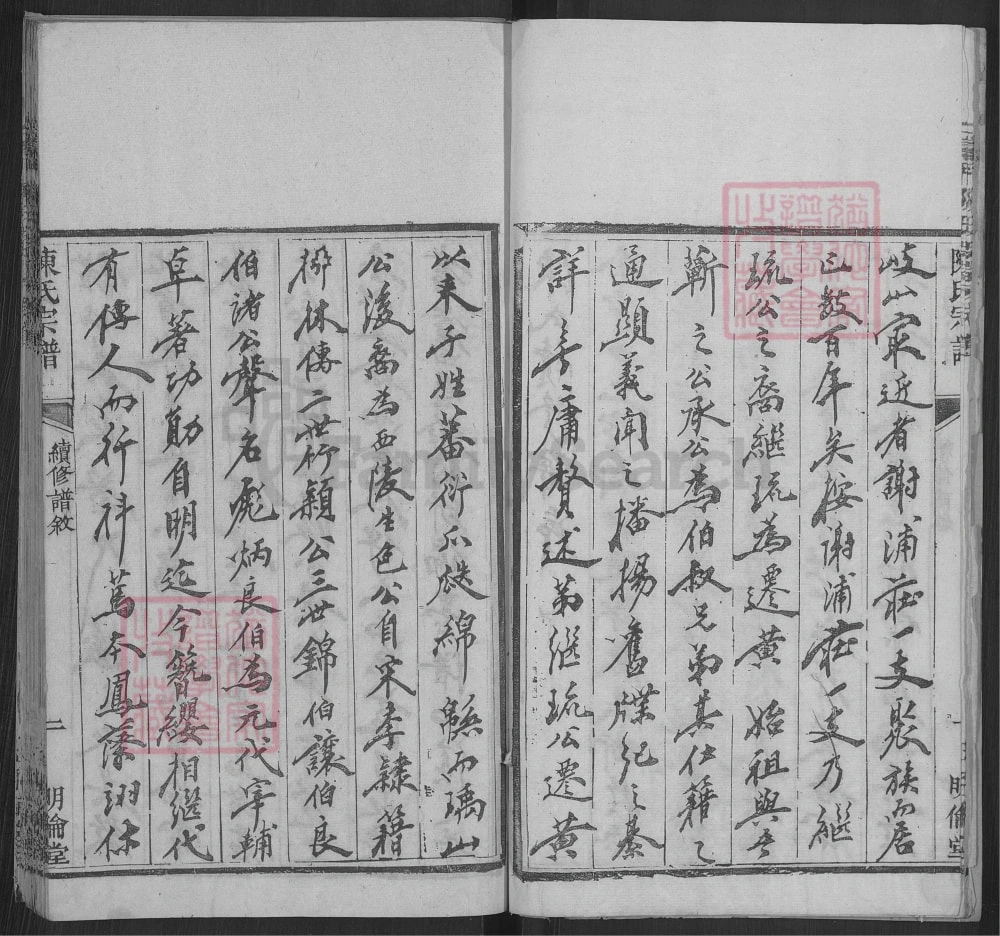 陳氏宗譜
明倫堂
岐山寂近者謝浦莊一支聚族而居
已数百年矣按謝浦莊一支乃繼
琉公之裔繼琉為遷黄始祖與吾
蘄之公承公為伯叔兄弟其仕籍之
通顯義闻之播揚舊牒紀之綦
詳無庸贅述弟继琉公遷黄
以来子姓蕃衍瓜瓞綿緜而瑀山
公後裔為西陵生色公自宋季隸籍
掷林傳二世行穎公三世錦伯讓伯良
伯諸公聲名彪炳良伯為元代宰輔
卓著功勛自明迄今簪纓相继代
有傳人而行科蔦本鳳藻翊休
陳氏宗譜
續修譜敘
二
明倫堂
FamilySearch